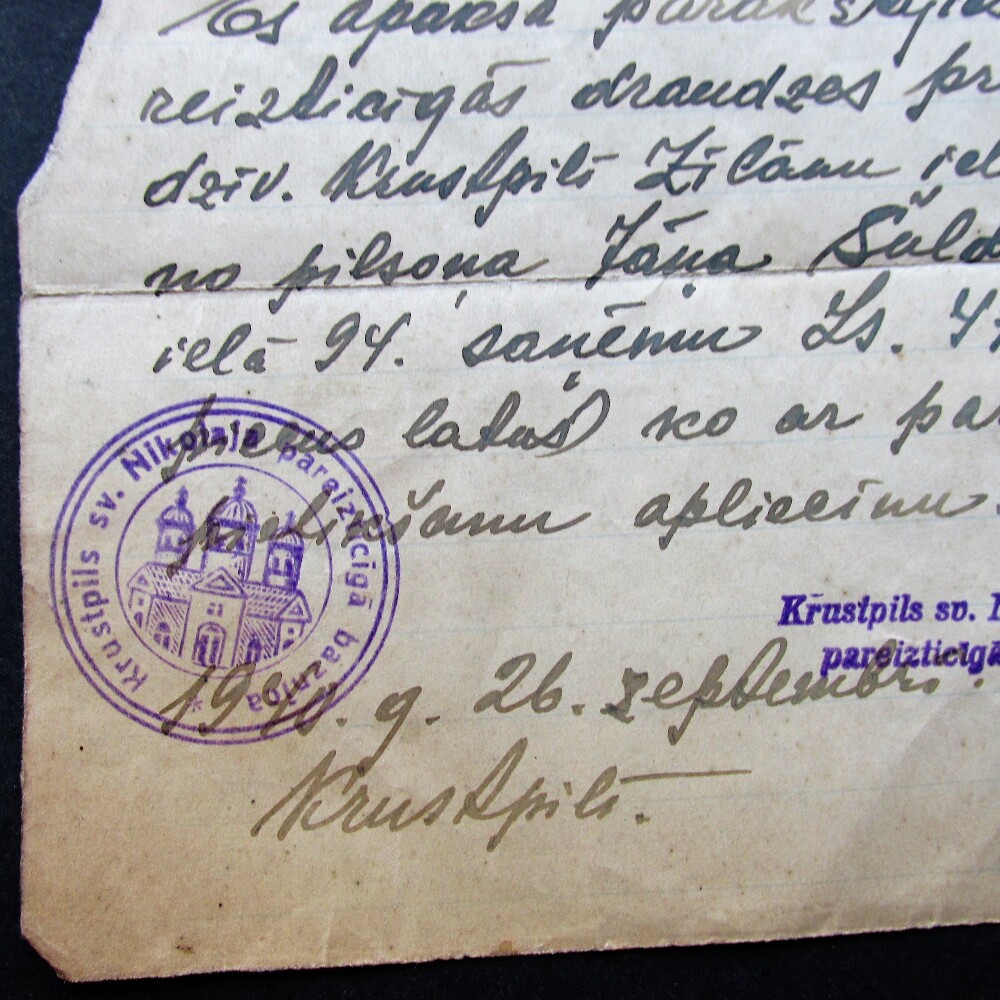 Es apakšā parakstījies
reizticīgās draudzes pr
dzīv. Krustpilī Zīlānu iel
no pilsoņa Jāņa Šūld
ielā 94. saņēmu Ls. 4
piecus latus) ko ar pa
pielikšanu apliecinu.
Krustpils sv. Nikolaja pareizticīgā baznīca *
Krustpils sv.
pareizticīgā
g. 26. septembrī.
Krustpilī.